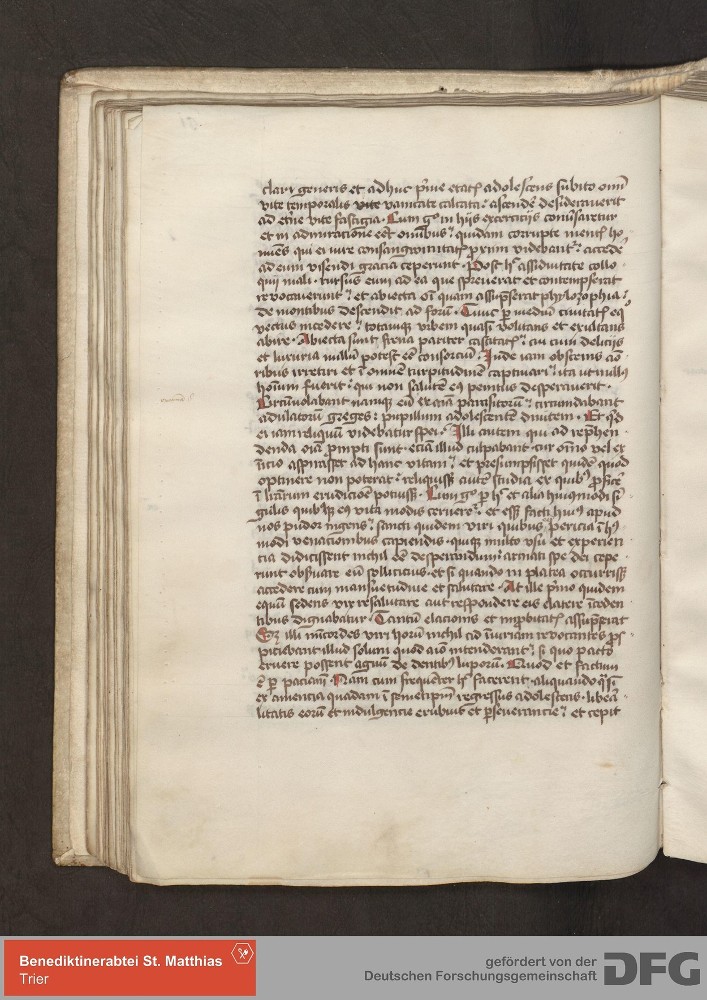 clari generis et adhuc p̄me etatꝭ adolesc̄ens subito om̄i
vite temporalis vite vanitate calcata ascende᷑ desiderauerit
ad et̄ne vite fastigia. Cum gͦ in hijs exercicijs conuersaretur
et in admiratione eēt omnibus quidam corrupte mentꝭ ho
mines qui ei iure consangwinitatꝭ proximi videbant᷑ accede᷑
ad eum visendi gracia ceperunt. Post hͨ assiduitate collo
quij mali. rursus eum ad ea que spreuerat et contempserat
reuocauerunt et abiecta oı̄ quam assumpserat phylozophia
de montibus descendit ad forū. Tunc ꝑ mediū ciuitatꝭ eqͦ
vectus incedere totamqꝫ vrbem quasi volitans et exultans
abire. Abiecta sunt frena pariter castitatꝭ cui cum delicijs
et luxuria nullū potest eē consorciū. Inde iam obscenis amō
ribus irretiri et ī omnē turpitudinē captiuari ita ut nullꝯ
hoı̄um fuerit qui non salutē eꝯ penitus desperauerit.
Circūuolabant namqꝫ eū etiā parasitorū circumdabant
adulatorū greges: pupillum adolescentē diuitem. Et qͩ
ei iam reliquū videbatur spei. Illi autem qui ad rep̄hen
denda oı̄a prompti sunt. eciā illud culpabant. cur om̄io vel ex
īicio aspirasset ad hanc vitam et presumpsisset quidē quod
optinere non poterat reliquiss᷑ autē studia ex quibꝯ profice᷑
ī lr̄arum erudicioē potuiss᷑. Cum gͦ ꝑ hͨ et alia huiusmodi sī
gulis quibusqꝫ eꝯ vita modis cernere᷑ et ess᷑ facti huiꝯ apud
nos pudor ingens sancti quidem viri quibus pericia ī hꝯ
modi venacionibus capiendis. quiqꝫ multo vsu et experien
tia didicissent nichil eē desperandum armati spe dei cepe
runt obseruare eū sollicicius. et si quando in platea occurriss᷑
accedere cum mansuetudine et salutare. At ille primo quidem
equū sedens vix resalutare aut respondere eis elatere īceden
tibus dignabatur. Tantū elacionis et inprobitatꝭ assumpserat
Sꝫ illi mīcordes viri horū nichil ad iniuriam reuocantes pros
piciebant illud solum quod aīo intenderant si quo pacto
eruere possent agnū de dentibꝯ luporū. Quod et factum
ē ꝑ pacīam. Nam cum frequēter hͨ facerent. aliquando qͣsi
ex amencia quadam ī semetipm̄ regressus adolescens. libera
litatis eorū et indulgencie erubuit et perseuerancie et cepit
Benediktinerabtei St. Matthias
Trier
gefördert von der
Deutschen Forschungsgemeinschaft
DFG